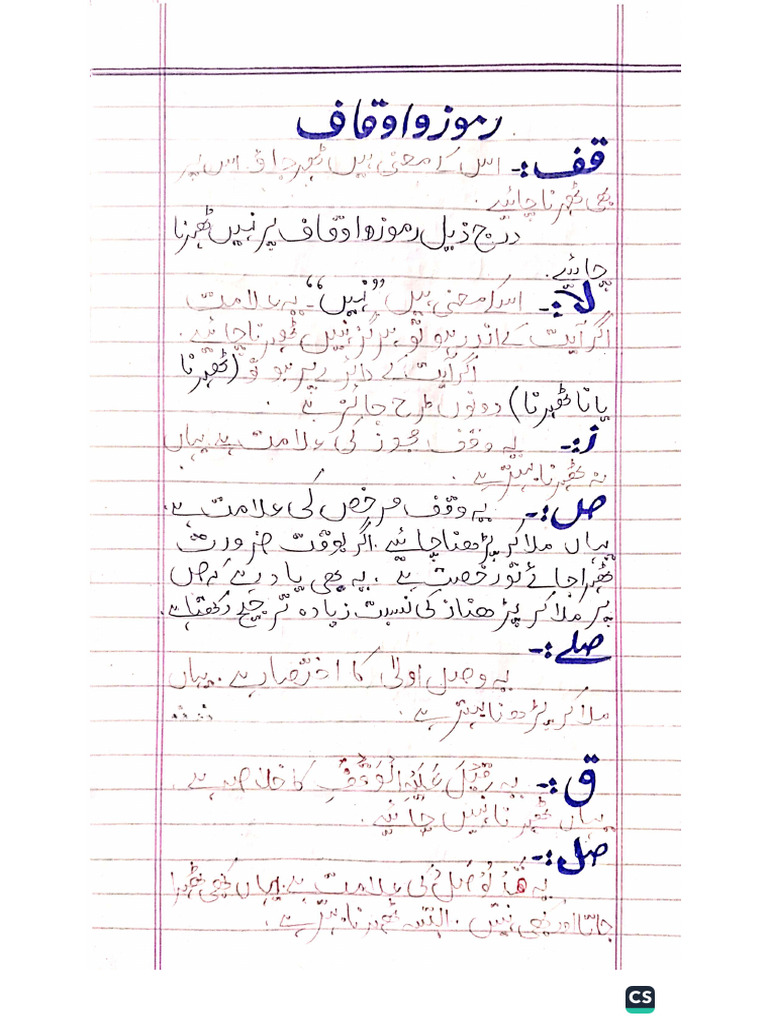 رموز و اوقاف
قف:- اس کے معنی ہیں ٹھہر جاؤ اس پر
بھی ٹھہرنا چائیے.
درج ذیل رموز و اوقاف پر نہیں ٹھہرنا
چائیے.
لا:- اسکے معنی ہیں "نہیں"۔ یہ علامت
اگر آیت کے اندر ہو تو ہرگز نہیں ٹھہرنا چائیے.
اگر آیت کے دائرے پر ہو تو (ٹھہرنا
یا نا ٹھہرنا) دونوں طرح جائز ہے.
ز:- یہ وقف مجوز کی علامت ہے یہاں
نہ ٹھہرنا بہتر ہے.
ص:- یہ وقف مرخص کی علامت ہے.
یہاں ملا کر پڑھنا چائیے. اگر بوقت ضرورت
ٹھہرا جائے تو رخصت ہے. یہ بھی یاد رہے کہ ص
پر ملا کر پڑھنا ز کی نسبت زیادہ ترجیح رکھتا ہے.
صلے:-
یہ وصل اولیٰ کا اختصار ہے. یہاں
ملا کر پڑھنا بہتر ہے.
ق:- یہ قِیْلَ عَلَیْہِ الْوَقْفُ کا خلاصہ ہے.
یہاں ٹھہرنا نہیں چائیے.
صل:-
یہ قَدْ یُوْصَلُ کی علامت ہے. یہاں کبھی ٹھہرا
جاتا اور کبھی نہیں. البتہ ٹھہرنا بہتر ہے.
CS